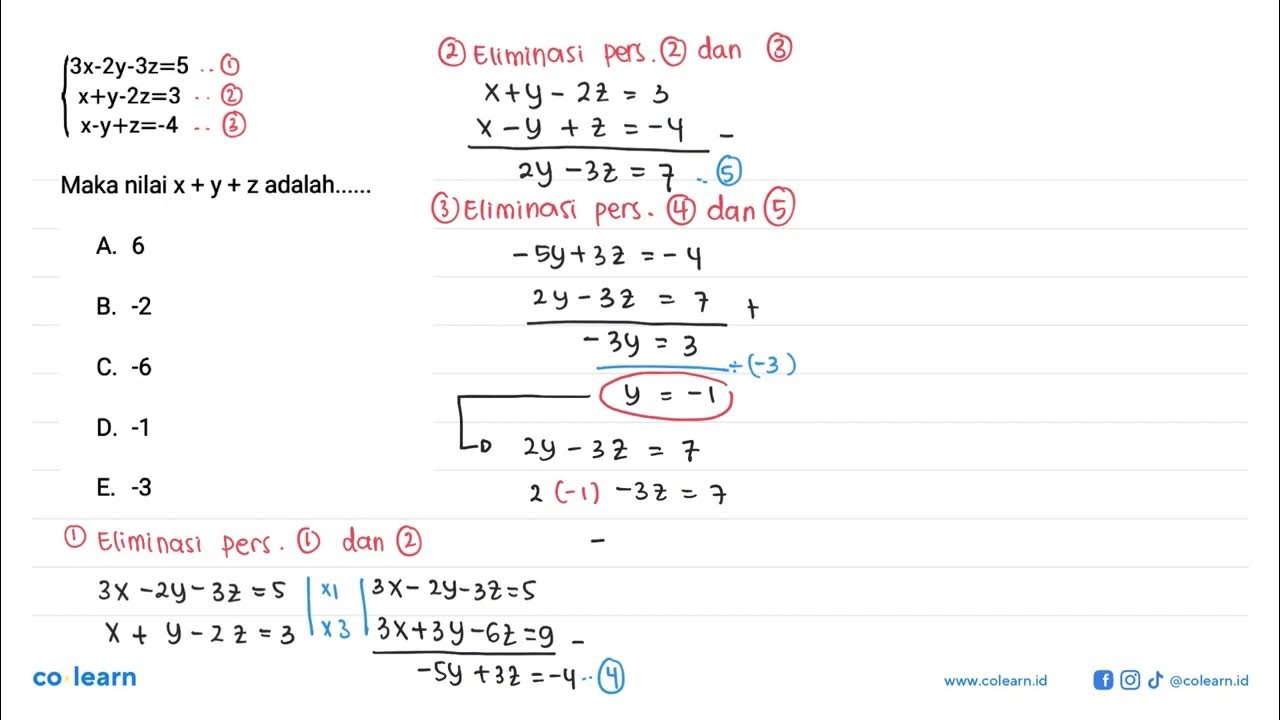 3x-2y-3z=5 .. ①
x+y-2z=3 .. ②
x-y+z=-4 .. ③
Maka nilai x + y + z adalah......
A. 6
B. -2
C. -6
D. -1
E. -3
① Eliminasi pers. ① dan ②
3x - 2y - 3z = 5 | x1 | 3x - 2y - 3z = 5
x + y - 2z = 3 | x3 | 3x + 3y - 6z = 9 -
-5y + 3z = -4 .. ④
② Eliminasi pers. ② dan ③
x + y - 2z = 3
x - y + z = -4 -
2y - 3z = 7 .. ⑤
③ Eliminasi pers. ④ dan ⑤
-5y + 3z = -4
2y - 3z = 7 +
-3y = 3
÷ (-3)
y = -1
2y - 3z = 7
2 (-1) - 3z = 7
-
co learn
www.colearn.id
@colearn.id